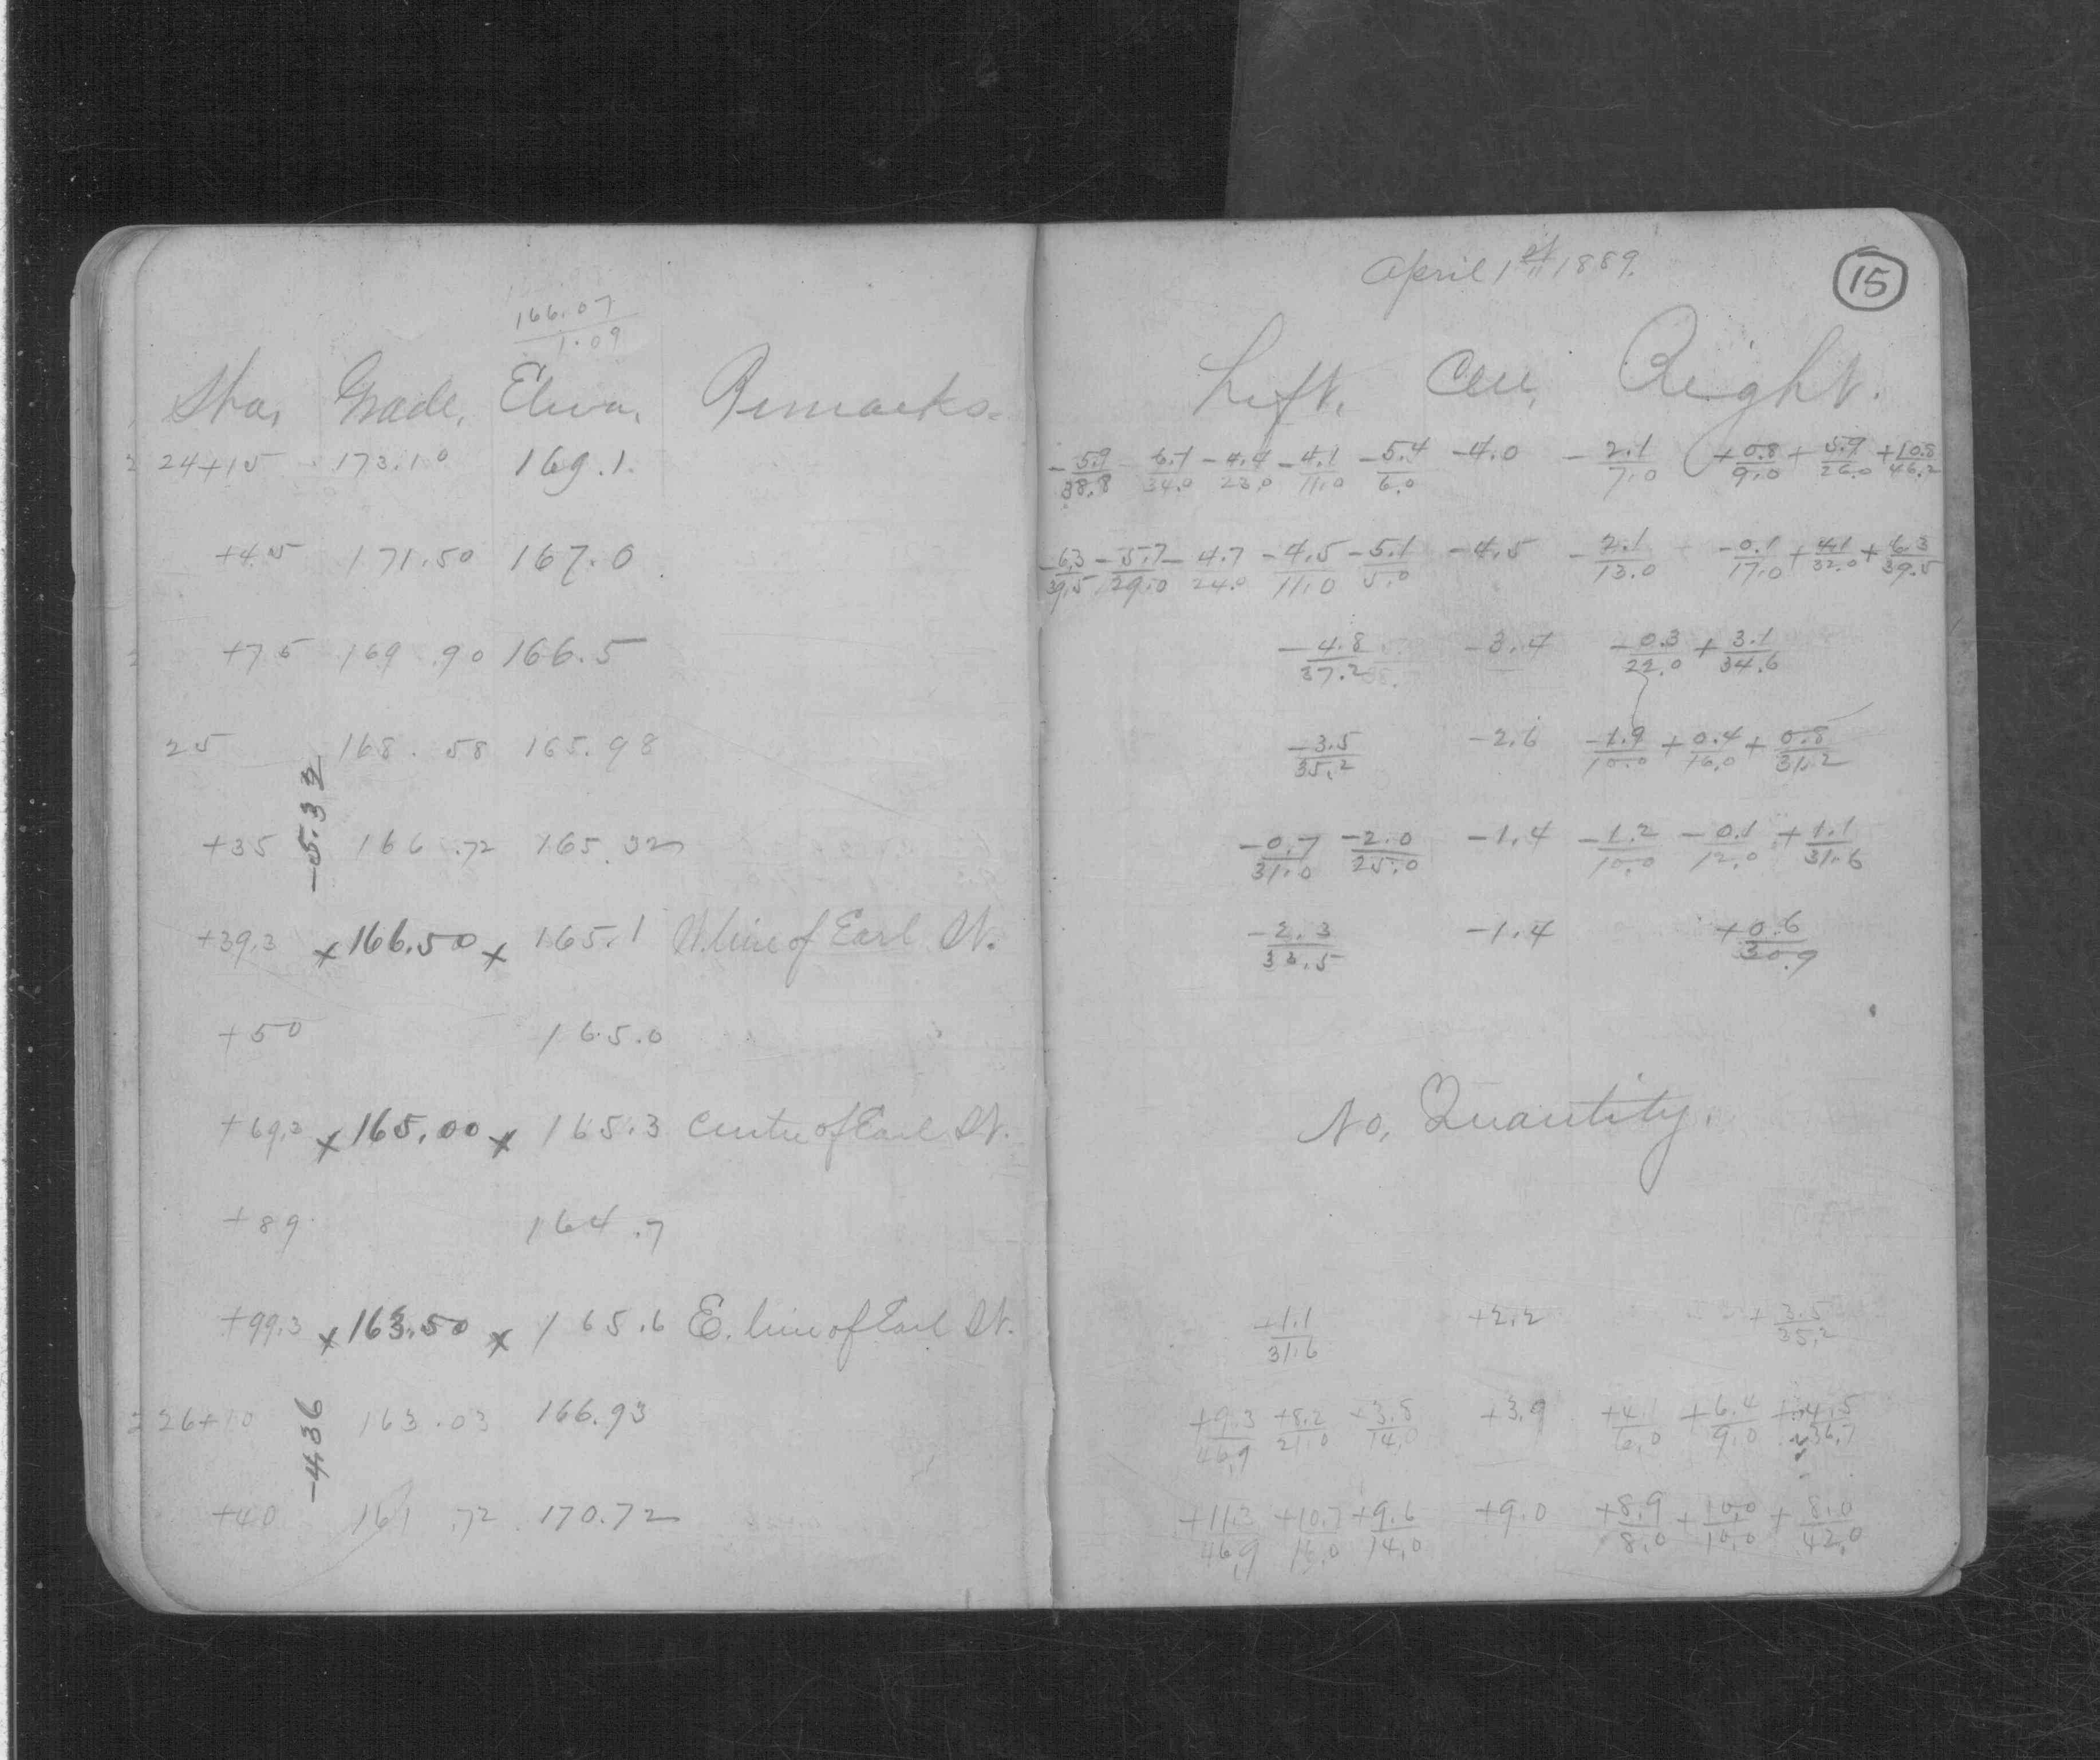 166.07
1.09
Sta, Grade, Eleva, Remarks.
24+15 173.10 169.1
+45 171.50 167.0
+75 169.90 166.5
25 168.58 165.98
-5.33
+35 166.72 165.32
+39.3 x 166.50 x 165.1 W. line of Earl St.
+50 165.0
+69.3 x 165.00 x 165.3 Centre of Earl St.
+89 164.7
+99.3 x 163.50 x 165.6 E. line of Earl St.
26+10 163.03 166.93
-4.36
+40 161.72 170.72
April 1st 1889.
15
Left, Cen, Right.
-5.9/38.8 6.7/34.0 -4.4/23.0 -4.1/11.0 -5.4/6.0 -4.0 -2.1/7.0 +0.8/9.0 +5.9/26.0 +10.8/46.2
-6.3/39.5 -5.7/29.0 -4.7/24.0 -4.5/11.0 -5.1/5.0 -4.5 -2.1/13.0 -0.1/17.0 +4.1/32.0 +6.3/39.5
-4.8/37.2 -3.4 -0.3/22.0 +3.1/34.6
-3.5/35.2 -2.6 -1.9/10.0 +0.4/16.0 +0.8/31.2
-0.7/31.0 -2.0/25.0 -1.4 -1.2/10.0 -0.1/12.0 +1.1/31.6
-2.3/33.5 -1.4 +0.6/30.9
No, Quantity.
+1.1/31.6 +2.2 +3.5/35.2
+9.3/46.9 +8.2/21.0 +3.8/14.0 +3.9 +4.1/6.0 +6.4/9.0 +4.5/36.7
+11.3/46.9 +10.7/16.0 +9.6/14.0 +9.0 +8.9/8.0 +10.0/10.0 +8.0/42.0